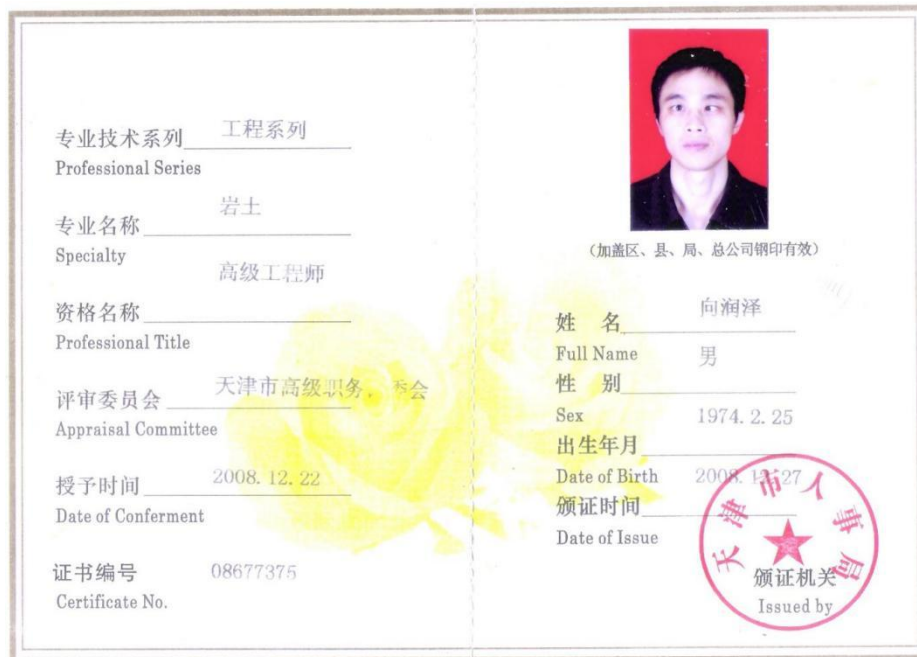 专业技术系列 工程系列
Professional Series
专业名称 岩土
Specialty
资格名称 高级工程师
Professional Title
评审委员会 天津市高级职务 委会
Appraisal Committee
授予时间 2008.12.22
Date of Conferment
证书编号 08677375
Certificate No.
(加盖区、县、局、总公司钢印有效)
姓 名 向润泽
Full Name
性 别 男
Sex
出生年月 1974.2.25
Date of Birth
颁证时间 2008.12.27
Date of Issue
天津市人事局
颁证机关
Issued by